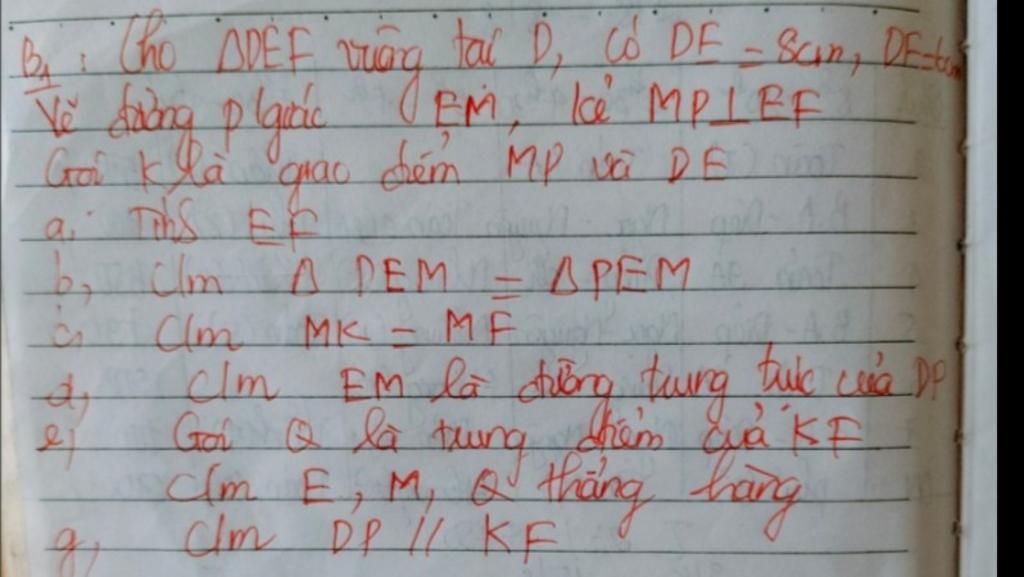 B1: Cho ΔDEF vuông tại D, có DE = 8cm, DF=6cm
Vẽ đường p/giác EM, kẻ MP⊥EF
Gọi K là giao điểm MP và DE
a, Tính EF
b, C/m Δ DEM = ΔPEM
c, C/m MK = MF
d, C/m EM là đường trung trực của DP
e, Gọi Q là trung điểm của KF
C/m E, M, Q thẳng hàng
g, C/m DP // KF